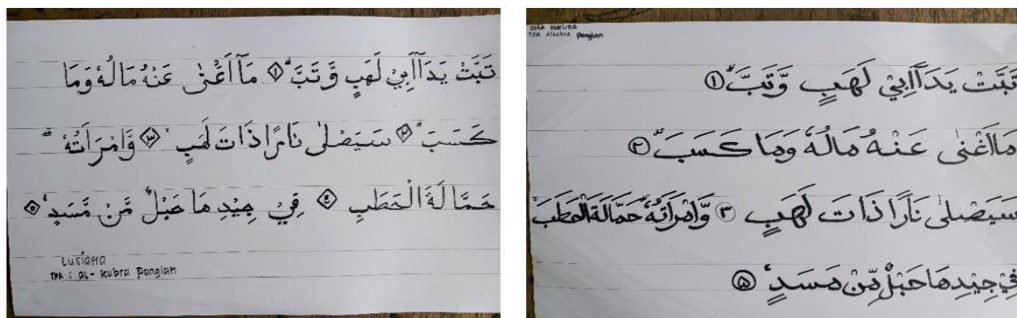 تَبَّتْ يَدَآ اَبِيْ لَهَبٍ وَّتَبَّ ۗ ﴿١﴾ مَآ اَغْنٰى عَنْهُ مَالُهٗ وَمَا
كَسَبَ ۗ ﴿٢﴾ سَيَصْلٰى نَارًا ذَاتَ لَهَبٍ ۙ ﴿٣﴾ وَّامْرَاَتُهٗ ۗ
حَمَّالَةَ الْحَطَبِ ﴿٤﴾ فِيْ جِيْدِهَا حَبْلٌ مِّنْ مَّسَدٍ ࣖ ﴿٥﴾
Lusiana
TPA : AL - Kubra Pangian
TPA Alkubra Pangian
تَبَّتْ يَدَآ اَبِيْ لَهَبٍ وَّتَبَّ ۗ ①
مَا اَغْنٰى عَنْهُ مَالُهٗ وَمَا كَسَبَ ۗ ٢
سَيَصْلٰى نَارًا ذَاتَ لَهَبٍ ٣ وَّامْرَاَتُهٗ حَمَّالَةَ الْحَطَبِ
فِيْ جِيْدِهَا حَبْلٌ مِّنْ مَسَدٍ ٥